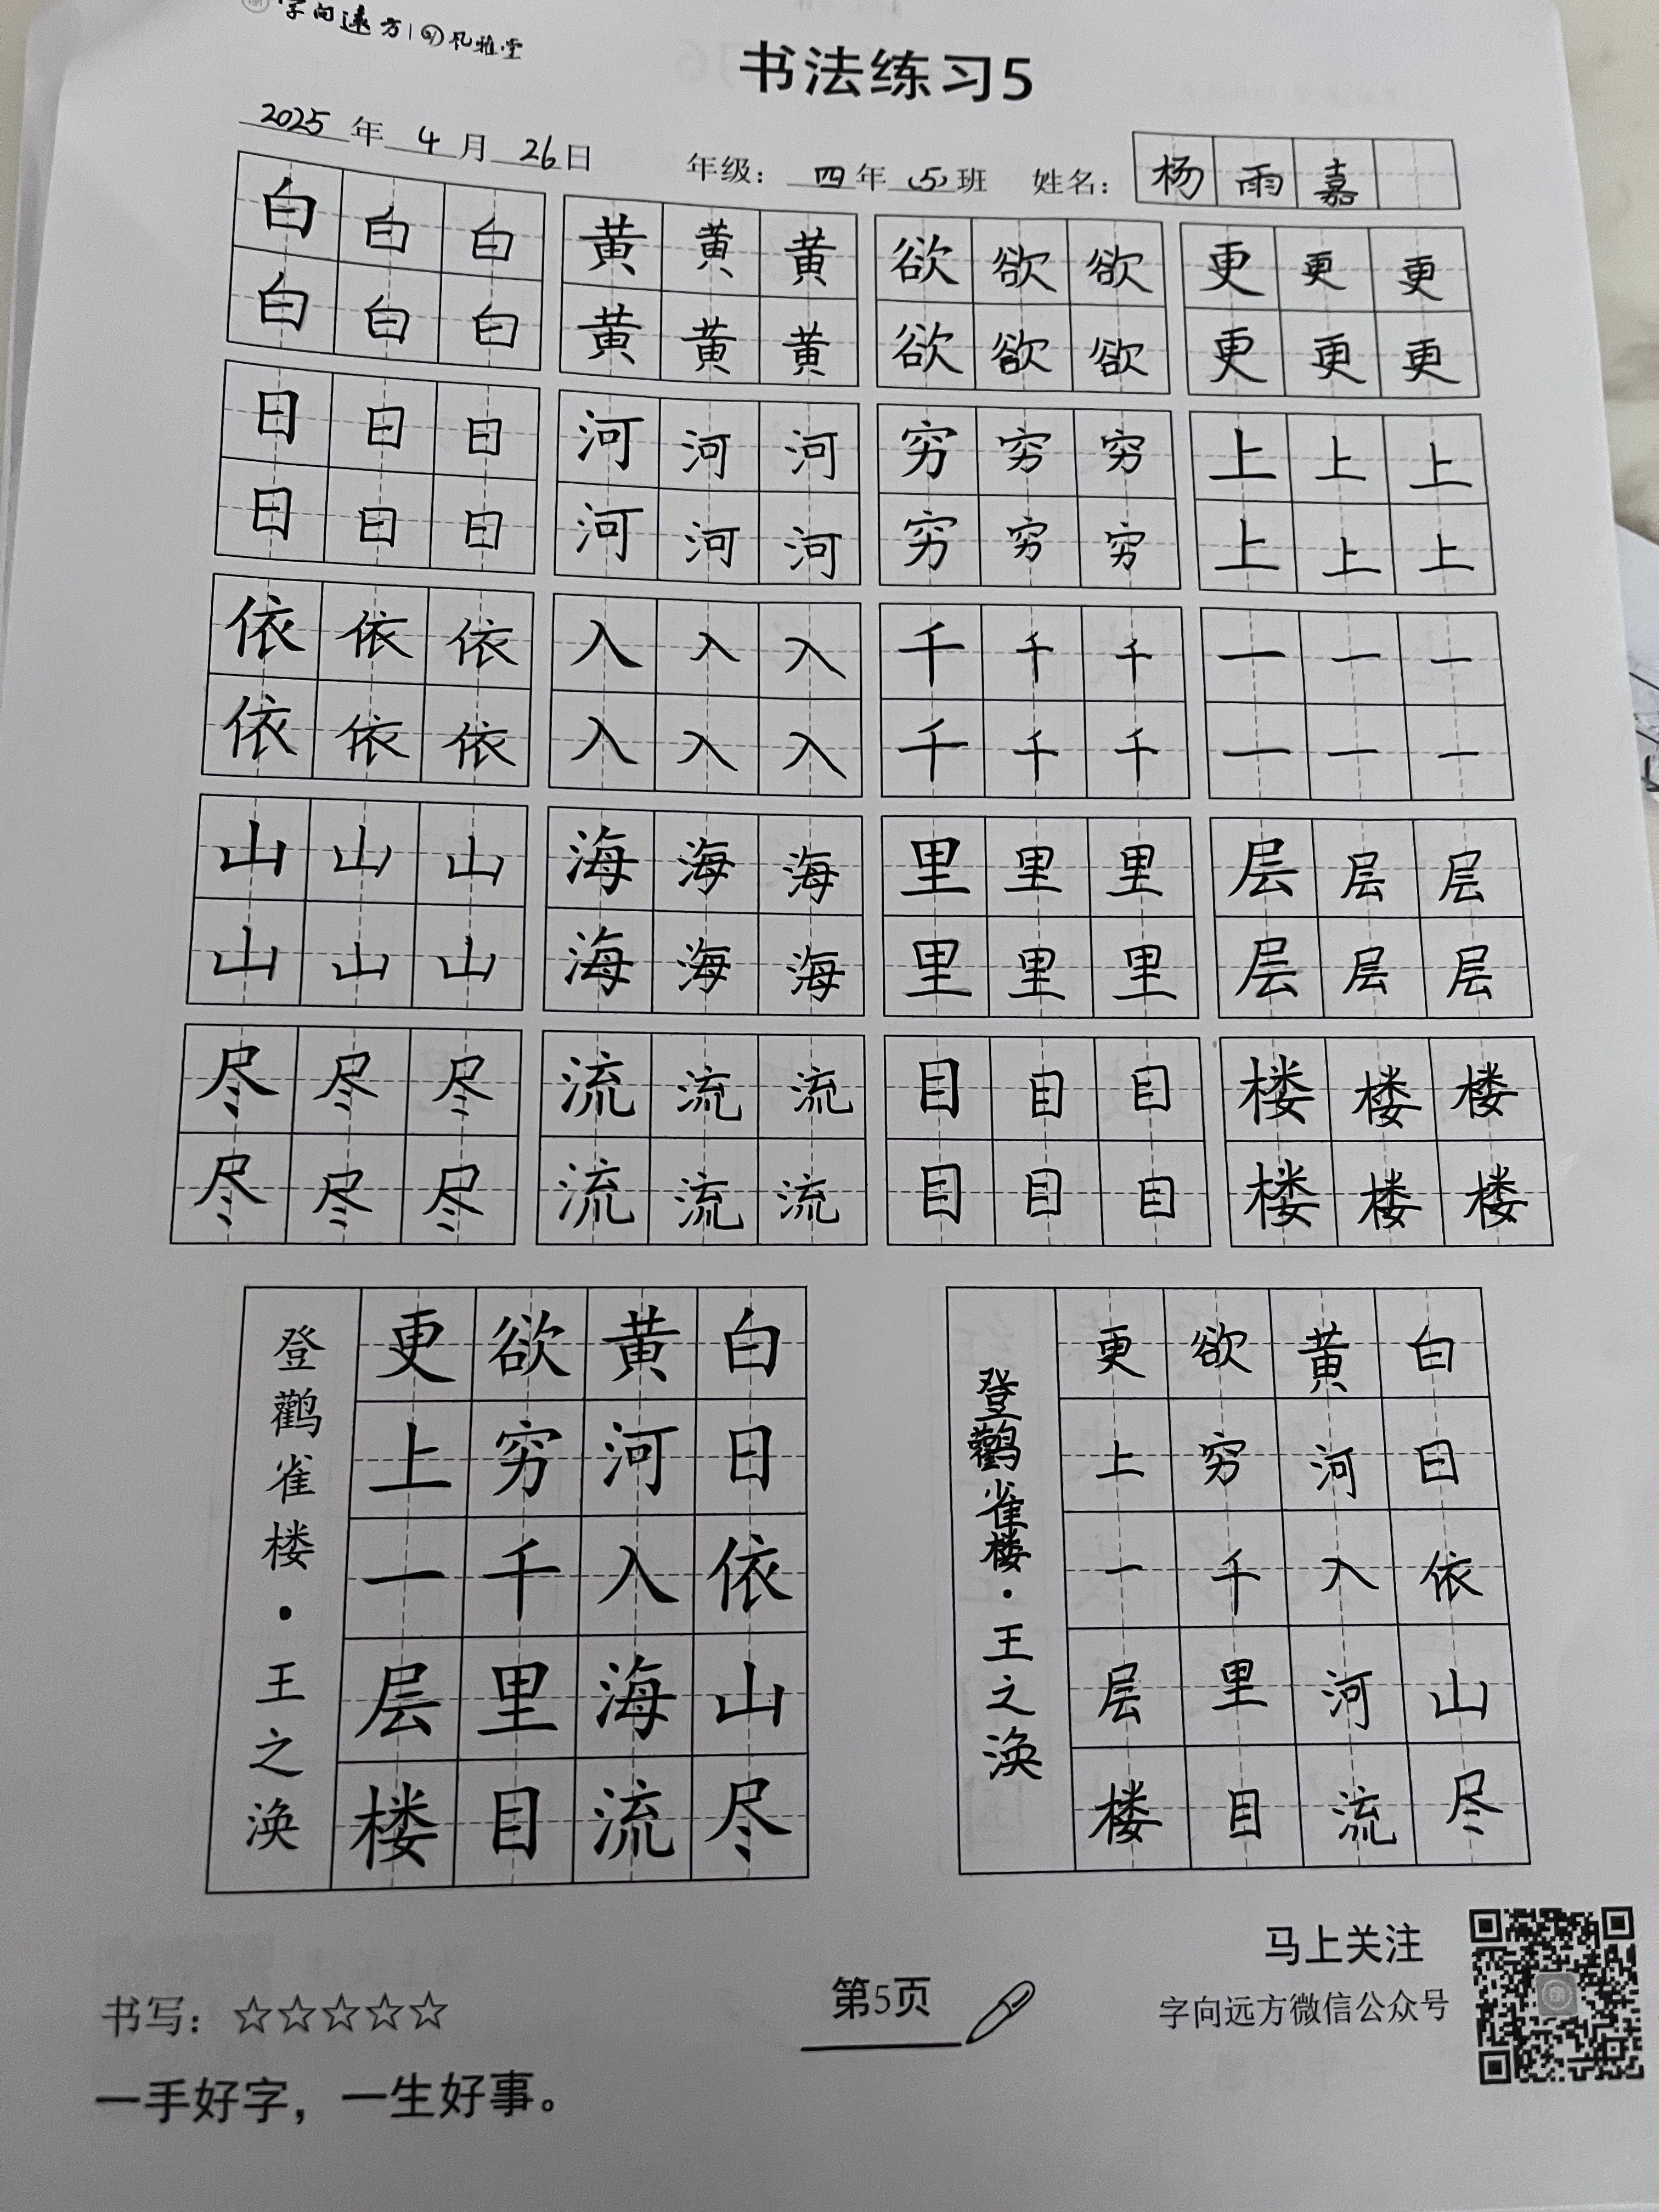 字向远方 风雅堂
书法练习5
2025年4月26日 年级：四年(5)班 姓名：杨雨嘉
白白白 黄黄黄 欲欲欲 更更更
白白白 黄黄黄 欲欲欲 更更更
日日日 河河河 穷穷穷 上上上
日日日 河河河 穷穷穷 上上上
依依依 入入入 千千千 一一一
依依依 入入入 千千千 一一一
山山山 海海海 里里里 层层层
山山山 海海海 里里里 层层层
尽尽尽 流流流 目目目 楼楼楼
尽尽尽 流流流 目目目 楼楼楼
白日依山尽
黄河入海流
欲穷千里目
更上一层楼
登鹳雀楼·王之涣
白日依山尽
黄河入河流
欲穷千里目
更上一层楼
登鹳雀楼·王之涣
书写：☆☆☆☆☆
一手好字，一生好事。
第5页
马上关注
字向远方微信公众号